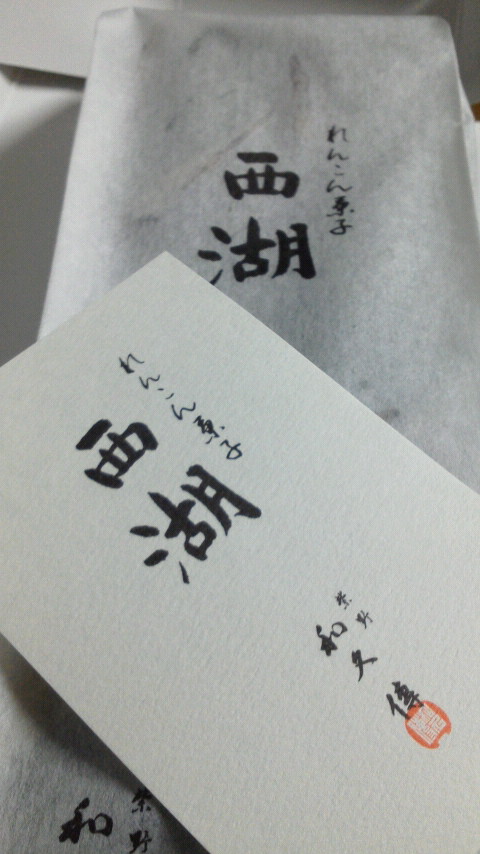 れんこん菓子
西湖
れんこん菓子
西湖
紫野
和久傳
紫野
和